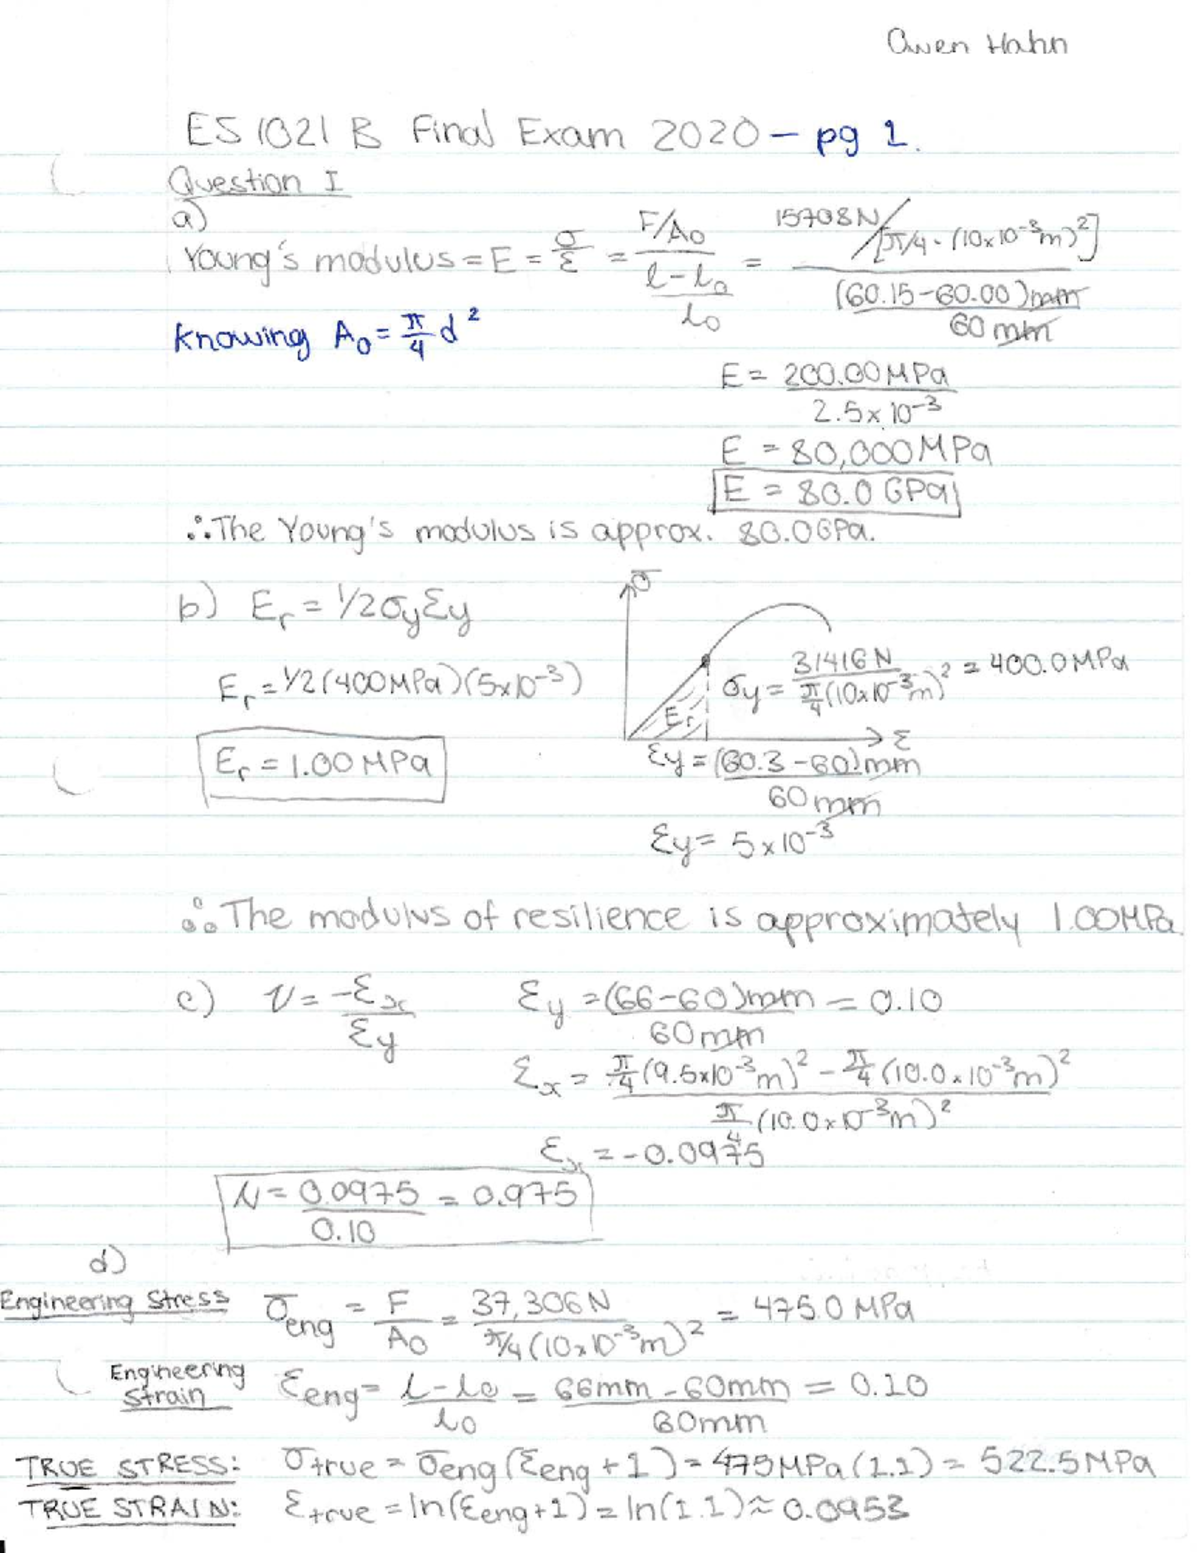 Owen Hahn
ES 1021 B Final Exam 2020 - pg 1.
Question I
a)
Young's modulus = E = σ/ε = (F/A₀)/((l-l₀)/l₀) = (15708N/[π/4 · (10x10⁻³m)²])/((60.15-60.00)mm/60 mm)
Knowing A₀ = π/4 d²
E = 200.00MPa/2.5x10⁻³
E = 80,000MPa
E = 80.0 GPa
∴ The Young's modulus is approx. 80.0GPa.
b) Er = 1/2σyεy
σ
Er = 1/2(400MPa)(5x10⁻³)
σy = 31416N/(π/4(10x10⁻³m)²) = 400.0MPa
Er
ε
Er = 1.00 MPa
εy = (60.3-60)mm/60mm
εy = 5x10⁻³
∴ The modulus of resilience is approximately 1.00MPa.
c) ν = -εx/εy εy = (66-60)mm/60mm = 0.10
εx = (π/4(9.5x10⁻³m)² - π/4(10.0x10⁻³m)²)/(π/4(10.0x10⁻³m)²)
εx = -0.0975
ν = 0.0975/0.10 = 0.975
d)
Engineering Stress σeng = F/A₀ = 37,306N/(π/4(10x10⁻³m)²) = 475.0 MPa
Engineering Strain εeng = (l-l₀)/l₀ = (66mm-60mm)/60mm = 0.10
TRUE STRESS: σtrue = σeng(εeng+1) = 475MPa(1.1) = 522.5MPa
TRUE STRAIN: εtrue = ln(εeng+1) = ln(1.1) ≈ 0.0953